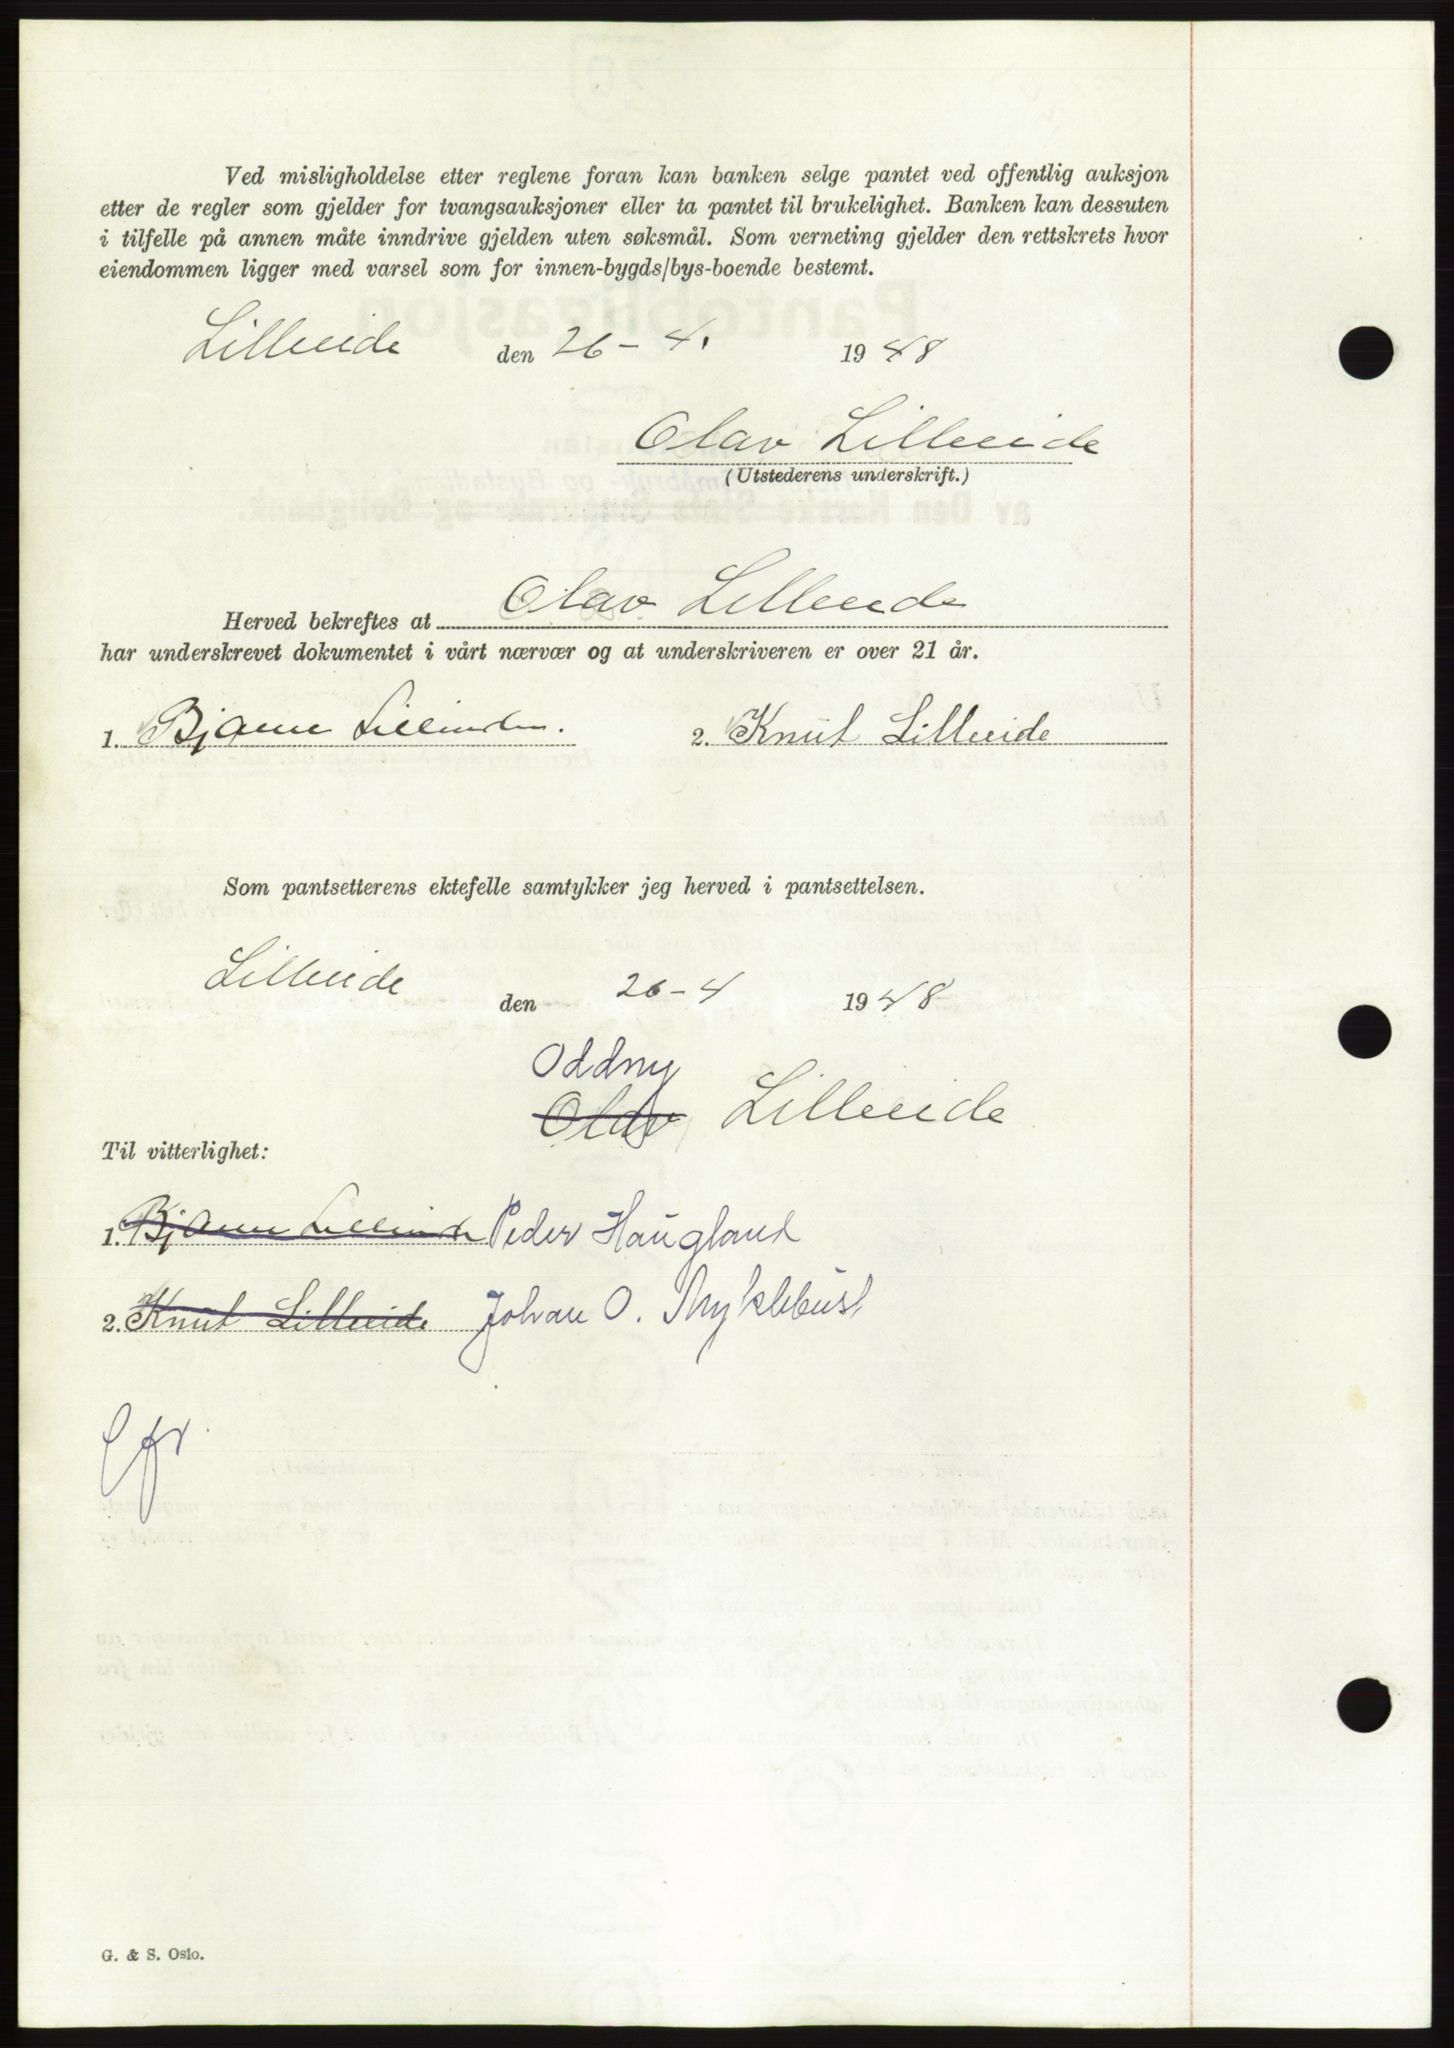 Ved misligholdelse etter reglene foran kan banken selge pantet ved offentlig auksjon
etter de regler som gjelder for tvangsauksjoner eller ta pantet til brukelighet. Banken kan dessuten
i tilfelle på annen måte inndrive gjelden uten søksmål. Som verneting gjelder den rettskrets hvor
eiendommen ligger med varsel som for innen-bygds/bys-boende bestemt.
Lilleeide den 26-4. 1948
Olav Lilleeide
(Utstederens underskrift.)
Herved bekreftes at Olav Lilleeide
har underskrevet dokumentet i vårt nærvær og at underskriveren er over 21 år.
1. Bjarne Lilleeide. 2. Knut Lilleeide
Som pantsetterens ektefelle samtykker jeg herved i pantsettelsen.
Lilleeide den 26-4 1948
Oddny
Olav Lilleeide
Til vitterlighet:
1. Bjarne Lilleeide Peder Haugland
2. Knut Lilleeide Johan O. Myklebust
G. & S. Oslo.